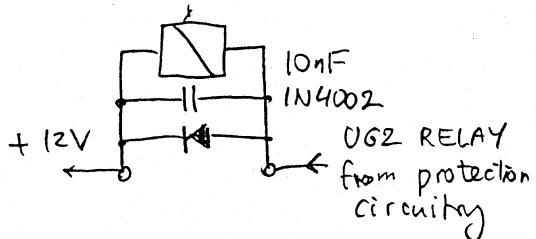 10nF
1N4002
+ 12V
UG2 RELAY
from protection
circuitry